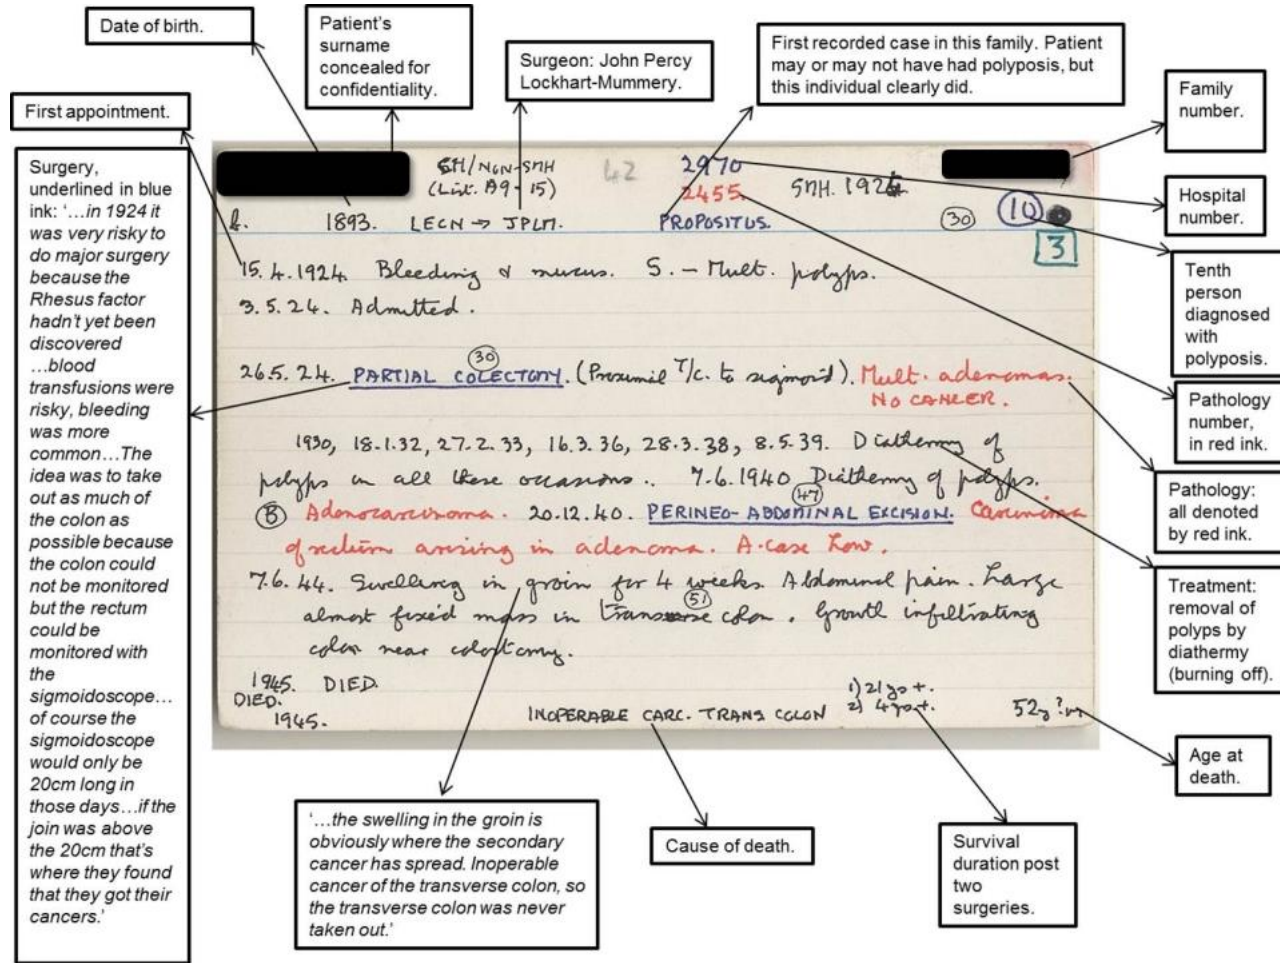 Date of birth.
Patient's
surname
concealed for
confidentiality.
Surgeon: John Percy
Lockhart-Mummery.
First recorded case in this family. Patient
may or may not have had polyposis, but
this individual clearly did.
Family
number.
First appointment.
Surgery,
underlined in blue
ink: '…in 1924 it
was very risky to
do major surgery
because the
Rhesus factor
hadn't yet been
discovered
…blood
transfusions were
risky, bleeding
was more
common…The
idea was to take
out as much of
the colon as
possible because
the colon could
not be monitored
but the rectum
could be
monitored with
the
sigmoidoscope…
of course the
sigmoidoscope
would only be
20cm long in
those days…if the
join was above
the 20cm that's
where they found
that they got their
cancers.'
SH/NON-SMH 42 2970
(List. A9-15) 2455. SMH. 1924
b. 1893. LECN → JPLM. PROPOSITUS. 30 10
3
15.4.1924. Bleeding & mucus. S. – Mult. polyps.
3.5.24. Admitted.
30
26.5.24. PARTIAL COLECTOMY. (Proximal T/C. to sigmoid). Mult. adenomas.
NO CANCER.
1930, 18.1.32, 27.2.33, 16.3.36, 28.3.38, 8.5.39. Diathermy of
polyps on all these occasions. 7.6.1940 Diathermy of polyps.
47
B Adenocarcinoma. 20.12.40. PERINEO-ABDOMINAL EXCISION. Carcinoma
of rectum arising in adenoma. A. case Low.
7.6.44. Swelling in groin for 4 weeks. Abdominal pain. Large
51
almost fixed mass in transverse colon. Growth infiltrating
colon near colostomy.
1945. DIED.
DIED. 1) 21 yrs +.
1945. INOPERABLE CARC. TRANS COLON 2) 4 yrs +. 52y ?
Hospital
number.
Tenth
person
diagnosed
with
polyposis.
Pathology
number,
in red ink.
Pathology:
all denoted
by red ink.
Treatment:
removal of
polyps by
diathermy
(burning off).
Age at
death.
'…the swelling in the groin is
obviously where the secondary
cancer has spread. Inoperable
cancer of the transverse colon, so
the transverse colon was never
taken out.'
Cause of death.
Survival
duration post
two
surgeries.